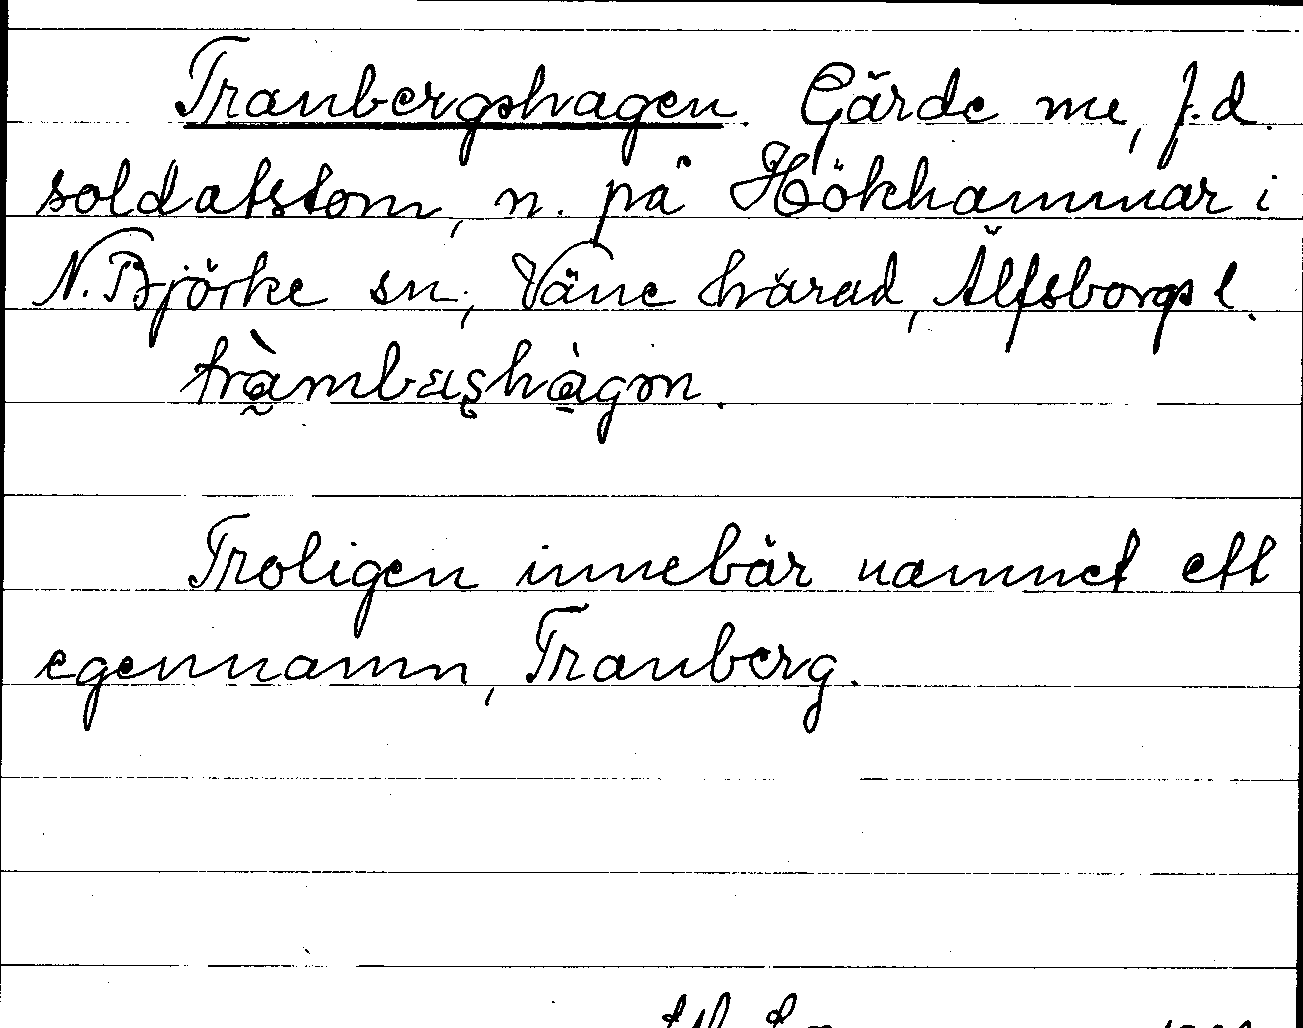 Tranbergshagen. Gärde me, f.d.
soldatstom, n. på Hökhammar i
N. Björke sn; Väne härad, Älfsborgs l.
Troligen innebär namnet ett
egennamn, Tranberg.